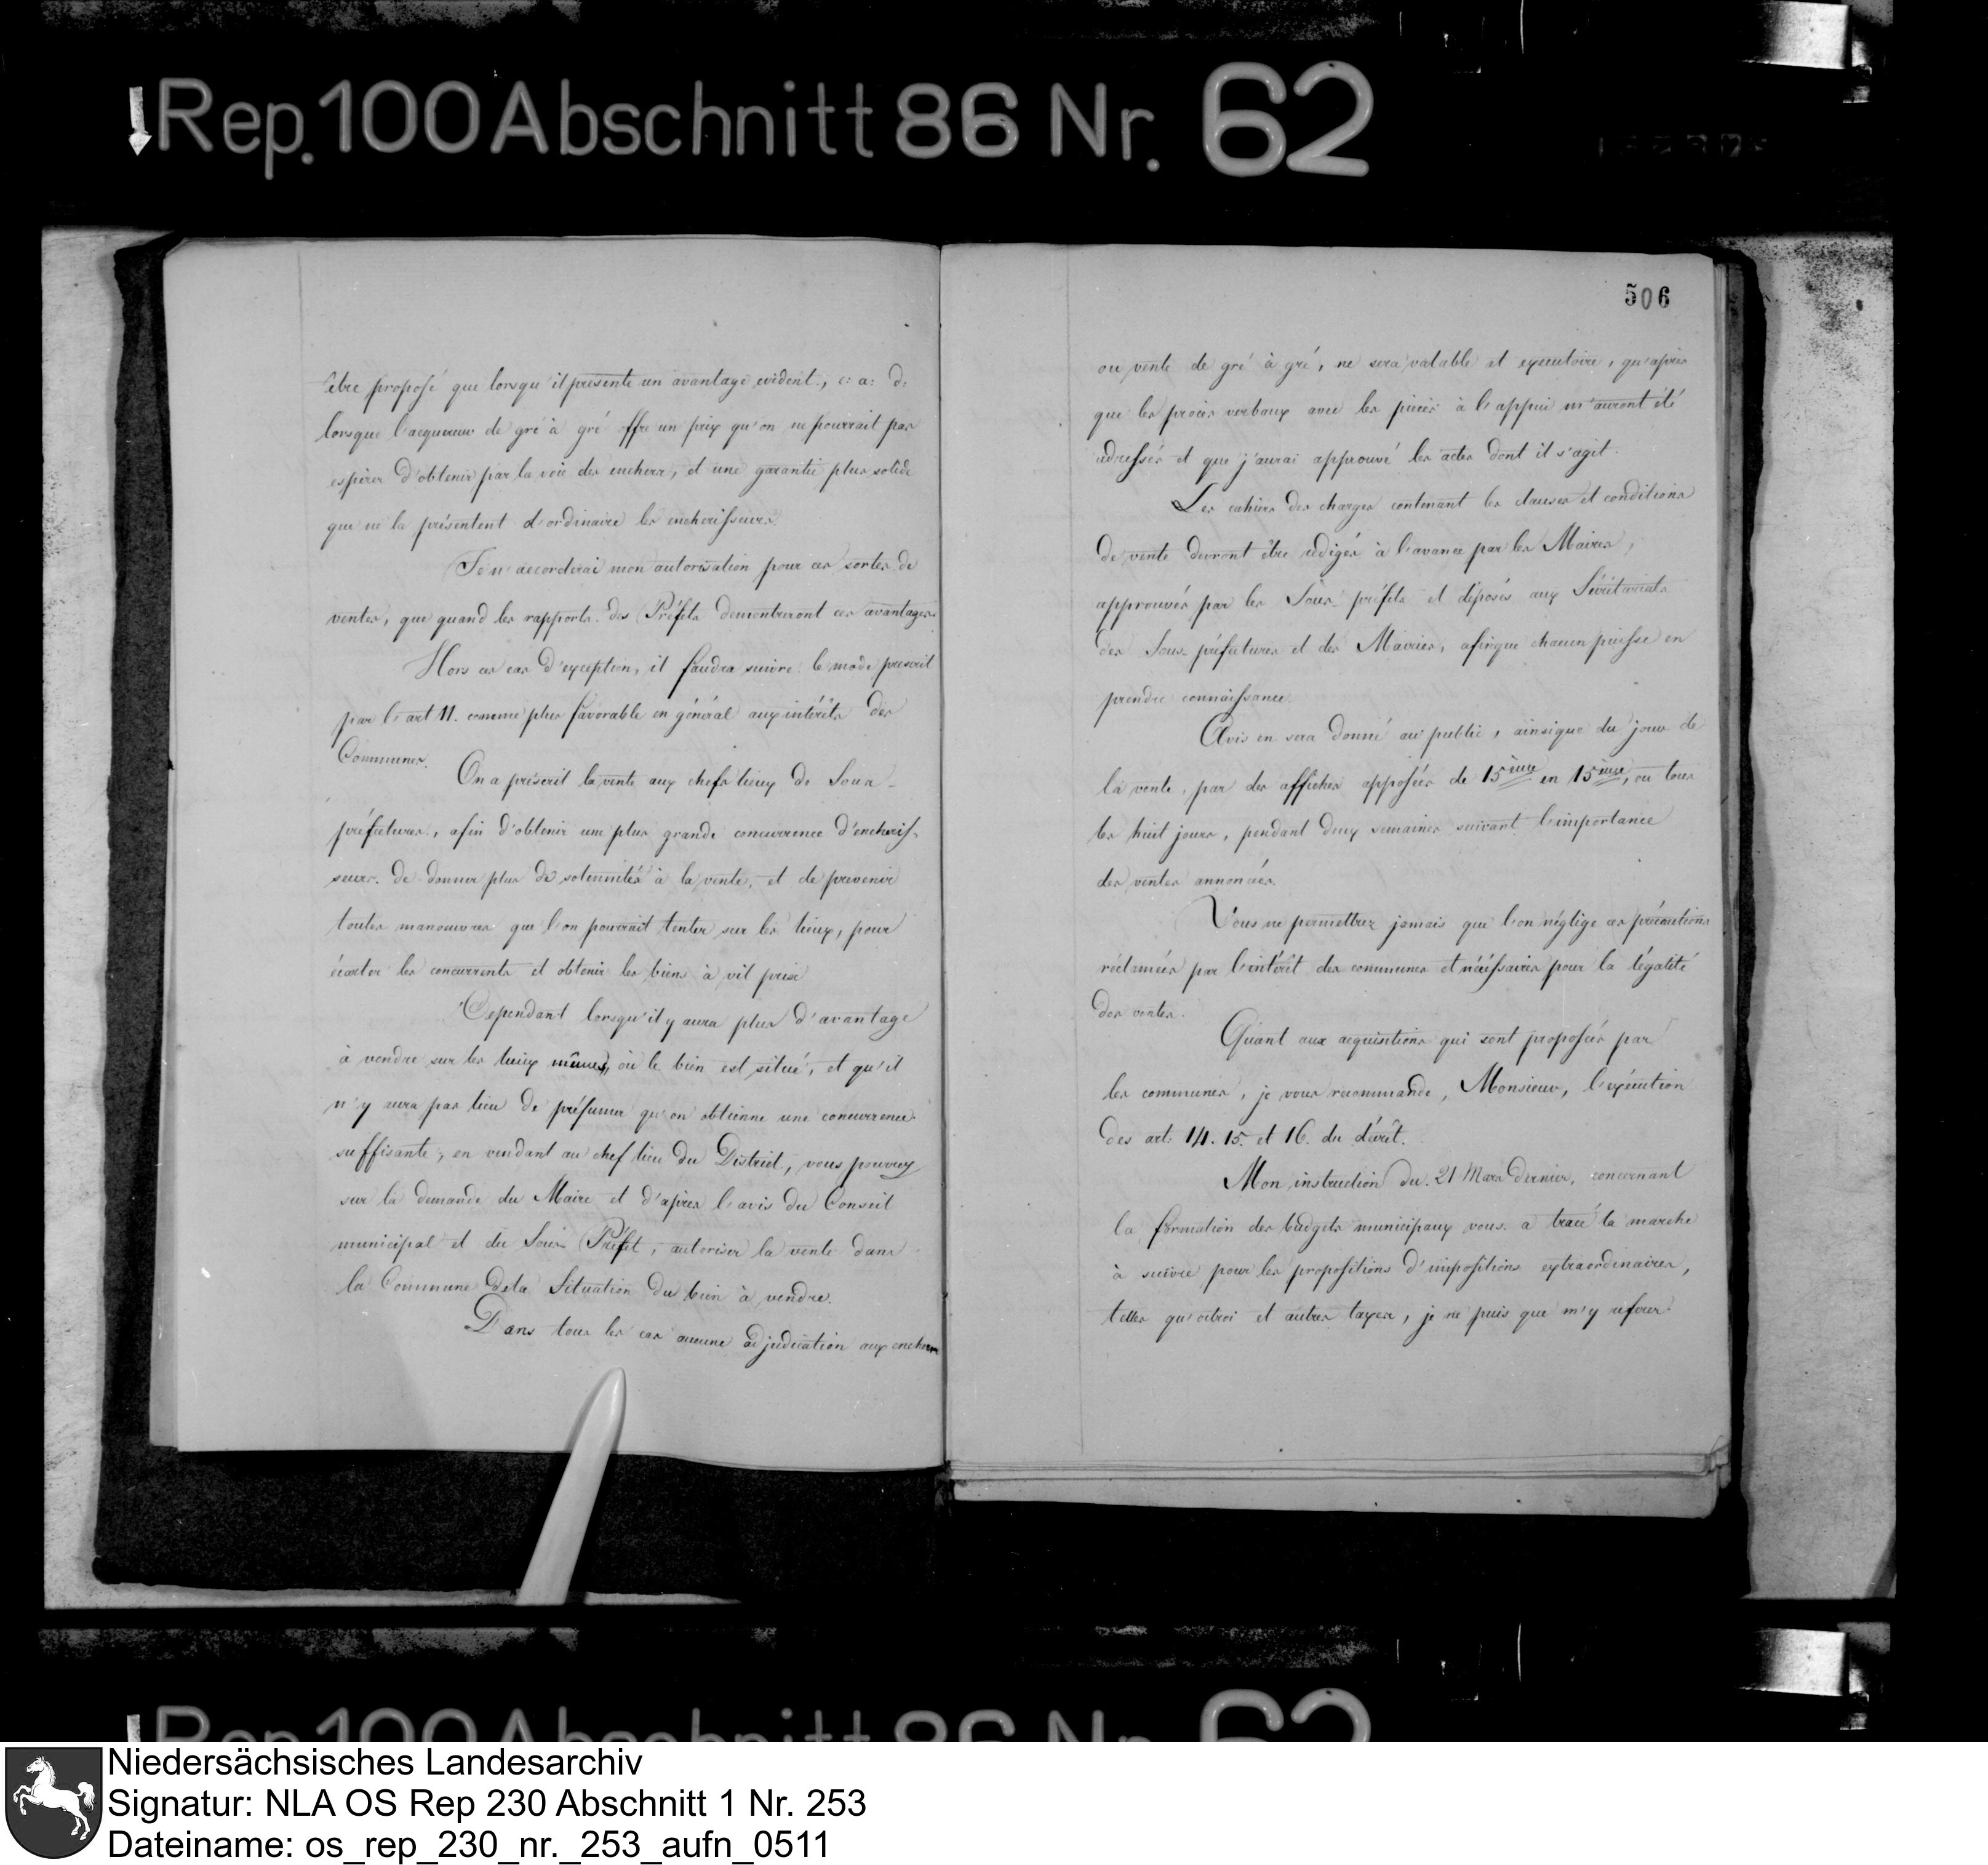 Rep. 100 Abschnitt 86 Nr. 62
être proposé que lorsqu'il présente un avantage evident., c: a: d:
lorsque l'acquereur de gré à gré offre un prix qu'on ne pourrait pas
espérer d'obtenir par la voie des encheres, et une garantie plus solide
que ne la présentent d'ordinaire les encherisseurs.
Je n'accorderai mon autorisation pour ces sortes de
ventes, que quand les rapports des Préfets demontreront ces avantages.
Hors ces cas d'exception, il faudra suivre le mode prescrit
par l'art 11. comme plus favorable en général aux intérêts des
Communes.
On a préscrit la vente aux chefs lieux de Sous-
préfectures, afin d'obtenir une plus grande concurrence d'encheris-
seurs. de donner plus de solennités à la vente, et de prevenir
toutes manoeuvres que l'on pourrait tenter sur les lieux, pour
écarter les concurrents et obtenir les biens à vil prise
Cependant lorsqu'il y aura plus d'avantage
à vendre sur les lieux mêmes, où le bien est situé, et qu'il
n'y aura pas lieu de présumer qu'on obtienne une concurrence
suffisante, en vendant au chef lieu du District, vous pouvez
sur la demande du Maire et d'après l'avis du Conseil
municipal et du Sous Préfet, autoriser la vente dans
la Commune dela Situation du bien à vendre.
Dans tous les cas aucune adjudication aux encheres
506
ou vente de gré à gré, ne sera valable et executoire, qu'après
que les procès verbaux avec les pièces à l'appui m'auront été
adressés et que j'aurai approuvé les actes dont il s'agit.
Les cahiers des charges contenant les clauses et conditions
de vente devront être rédigés à l'avance par les Maires,
approuvés par les Sous-préfets et déposés aux Sécrétariats
des Sous-préfectures et des Mairies, afinque chacun puisse en
prendre connaissance.
Avis en sera donné au public, ainsique du jour de
la vente, par des affiches apposées de 15ème en 15ème, ou tous
les huit jours, pendant deux semaines suivant l'importance
des ventes annoncées.
Vous ne permettrez jamais que l'on néglige ces précautions
réclamées par l'intérêt des communes et nécéssaires pour la légalité
des ventes.
Quant aux acquisitions qui sont proposées par
les communes, je vous recommande, Monsieur, l'exécution
des art: 14. 15. et 16. du décrêt.
Mon instruction du 21 Mars dernier, concernant
la formation des budgets municipaux vous a tracé la marche
à suivre pour les propositions d'impositions extraordinaires,
telles qu'octroi et autres taxes, je ne puis que m'y referer.
Rep. 100 Abschnitt 86 Nr. 62
Niedersächsisches Landesarchiv
Signatur: NLA OS Rep 230 Abschnitt 1 Nr. 253
Dateiname: os_rep_230_nr._253_aufn_0511